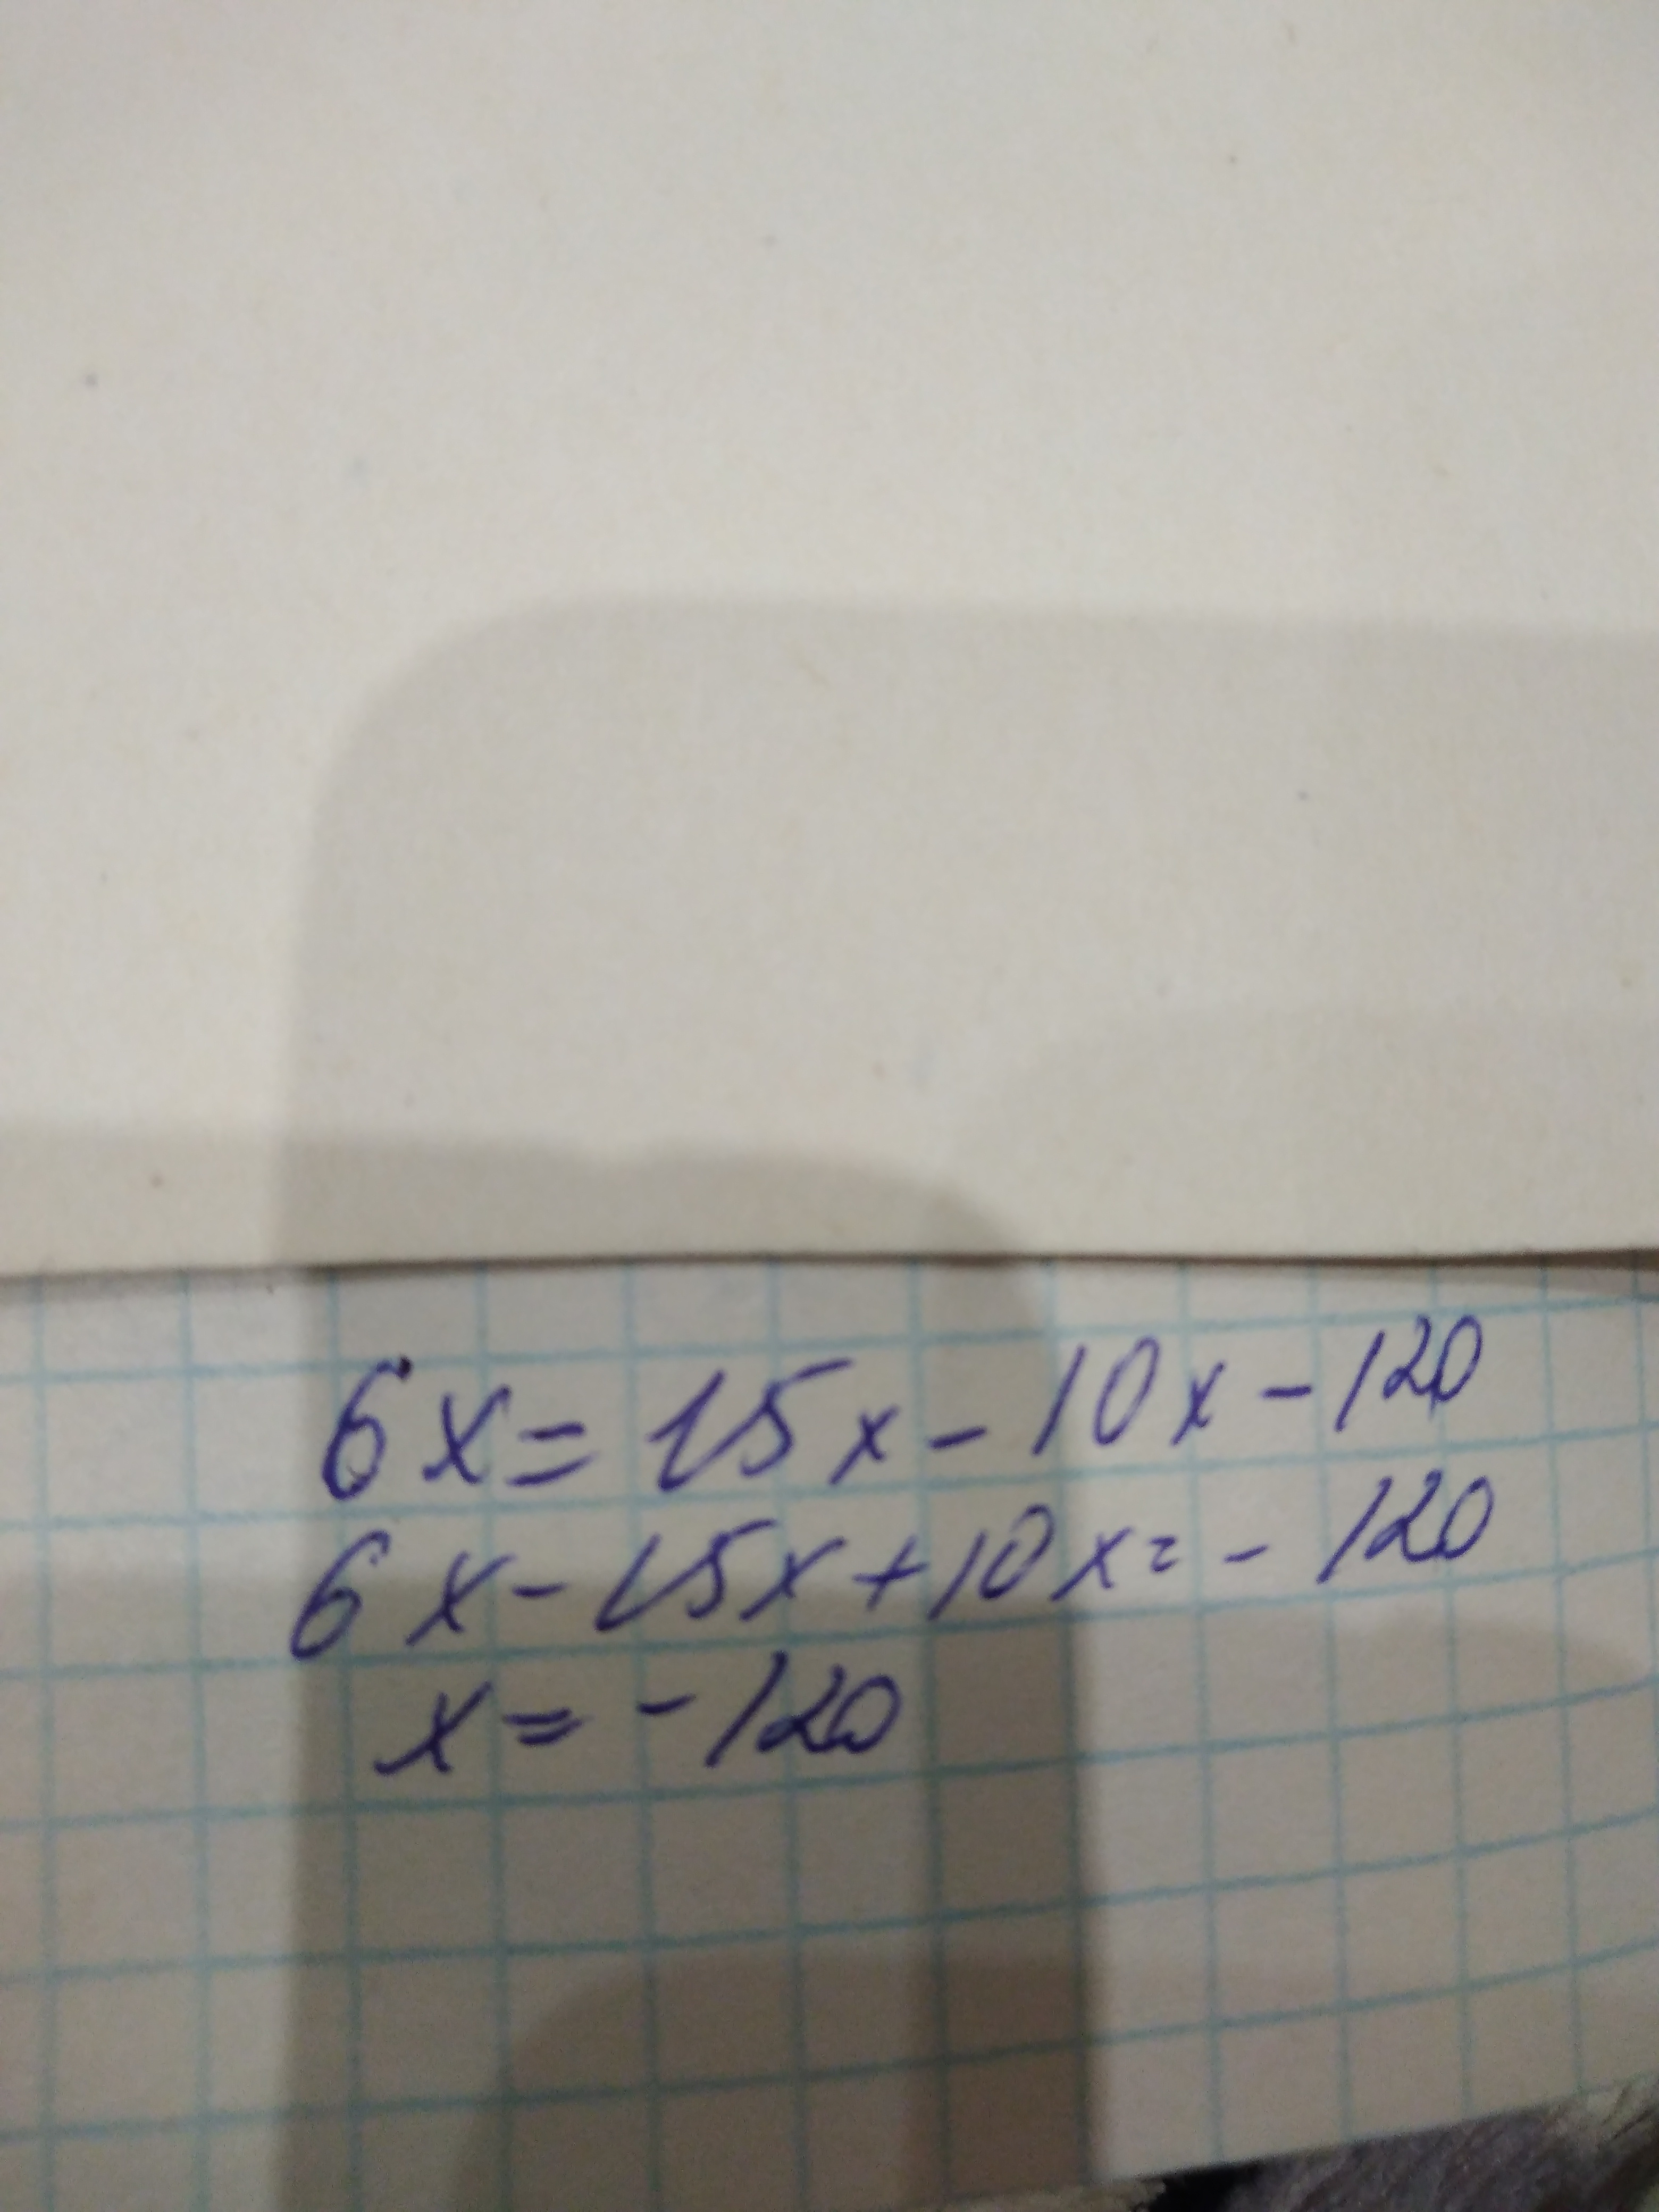 6x = 15x - 10x - 120
6x - 15x + 10x = - 120
x = - 120